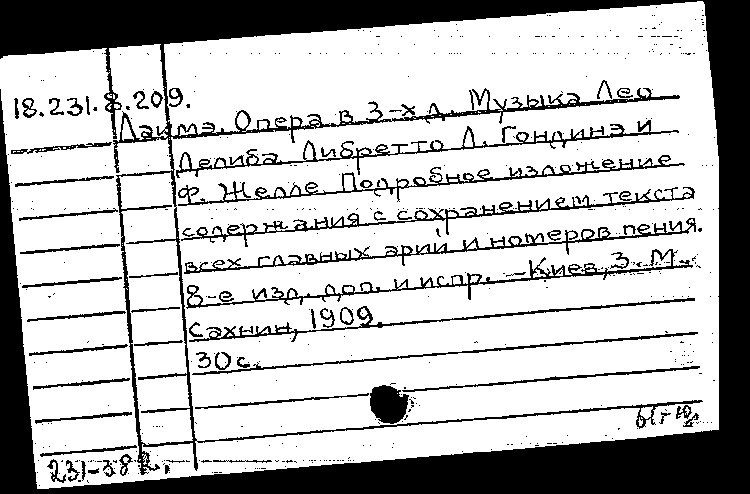 18.231.8.209.
Лакмэ. Опера в 3-х д. Музыка Лео
Делиба. Либретто Л. Гондинэ и
Ф. Желле. Подробное изложение
содержания с сохранением текста
всех главных арий и номеров пения.
8-е изд. доп. и испр. – Киев, З. М.
Сахнин, 1909.
30 с.
231-38